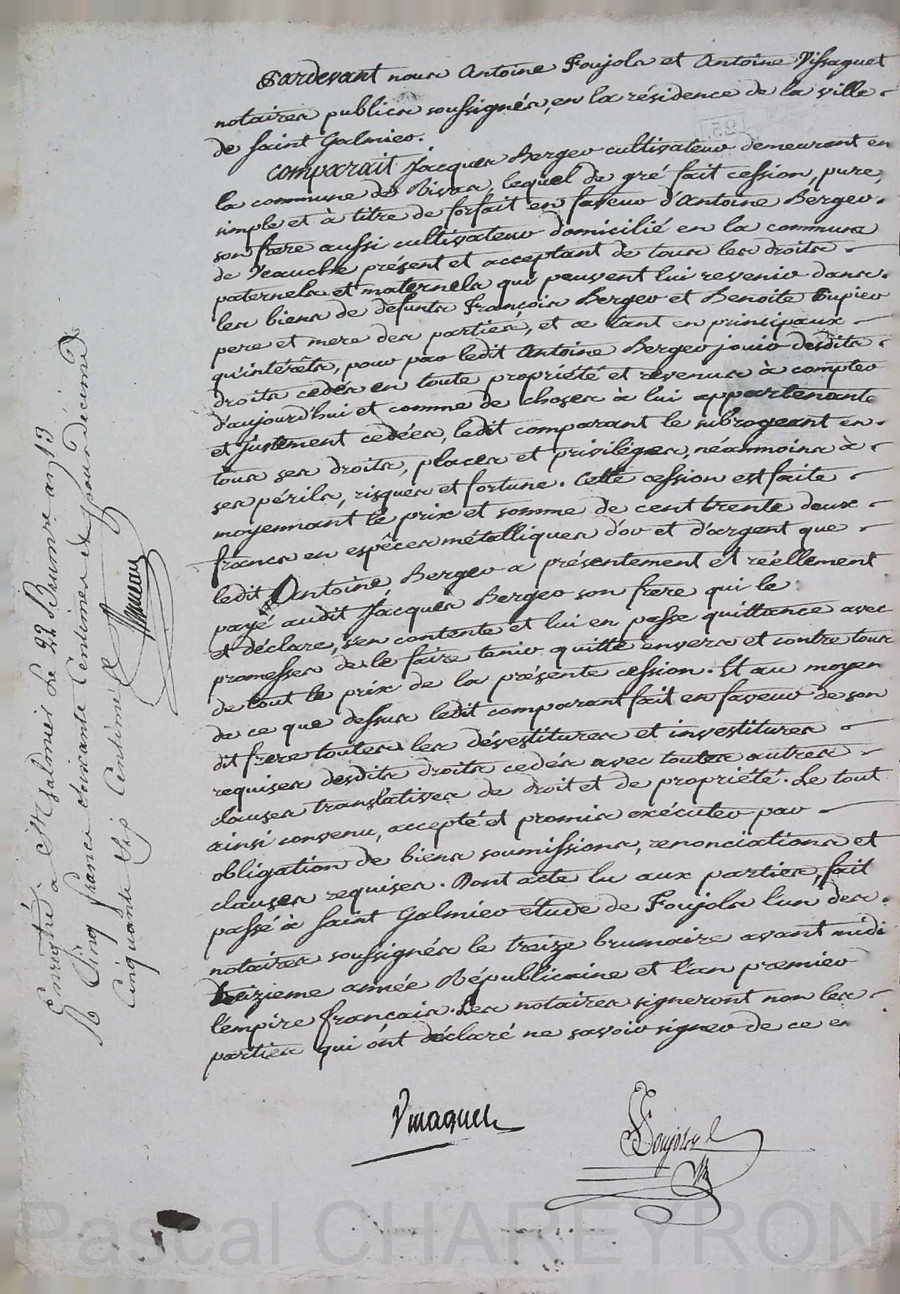 Pardevant nous Antoine Foujols et Antoine Vissaguet
notaires publics soussignés, en la résidence de la ville
de Saint Galmier.
Comparait Jacques Berger cultivateur demeurant en
la commune de Rivas, lequel de gré fait cession, pure,
simple et à titre de forfait en faveur d'Antoine Berger
son frere aussi cultivateur domicilié en la commune
de Veauche présent et acceptant de tous les droits
paternels et maternels qui peuvent lui revenir dans
les biens de défunts François Berger et Benoite Tupier
pere et mere des parties, et ce tant en principaux
qu'intérêts, pour par ledit Antoine Berger jouir desdits
droits cedés en toute propriété et revenus à compter
d'aujourd'hui et comme de choses à lui appartenante
et justement cedées, ledit comparant le subrogeant en
tous ses droits, places et privilèges, néanmoins à
ses périls, risques et fortune. Cette cession est faite
moyennant le prix et somme de cent trente deux
francs en espêces métalliques d'or et d'argent que
ledit Antoine Berger a présentement et réellement
payé audit Jacques Berger son frere qui le
et déclare, s'en contente et lui en passe quittance avec
promesse de le faire tenir quitte envers et contre tous
de tout le prix de la présente cession. Et au moyen
de ce que dessus ledit comparant fait en faveur de son
dit frere toutes les dévestitures et investitures
requises desdits droits cedés avec toutes autres
clauses translatives de droit et de propriété. Le tout
ainsi convenu, accepté et promis exécuter par
obligation de biens soumissions, renonciations et
clauses requises. Dont acte lu aux parties, fait
passé à Saint Galmier étude de Foujols l'un des
notaires soussignés le treize brumaire avant midi
treizieme année Républicaine et l'an premier
l'empire français. Les notaires signeront non les
parties qui ont déclaré ne savoir signer de ce en
Vissaguet
Foujols
Enregistré à St Galmier le 22 Brumre an 13
R Cinq francs cinquante centimes et pour décime
Cinquante six centimes
Pascal CHAREYRON